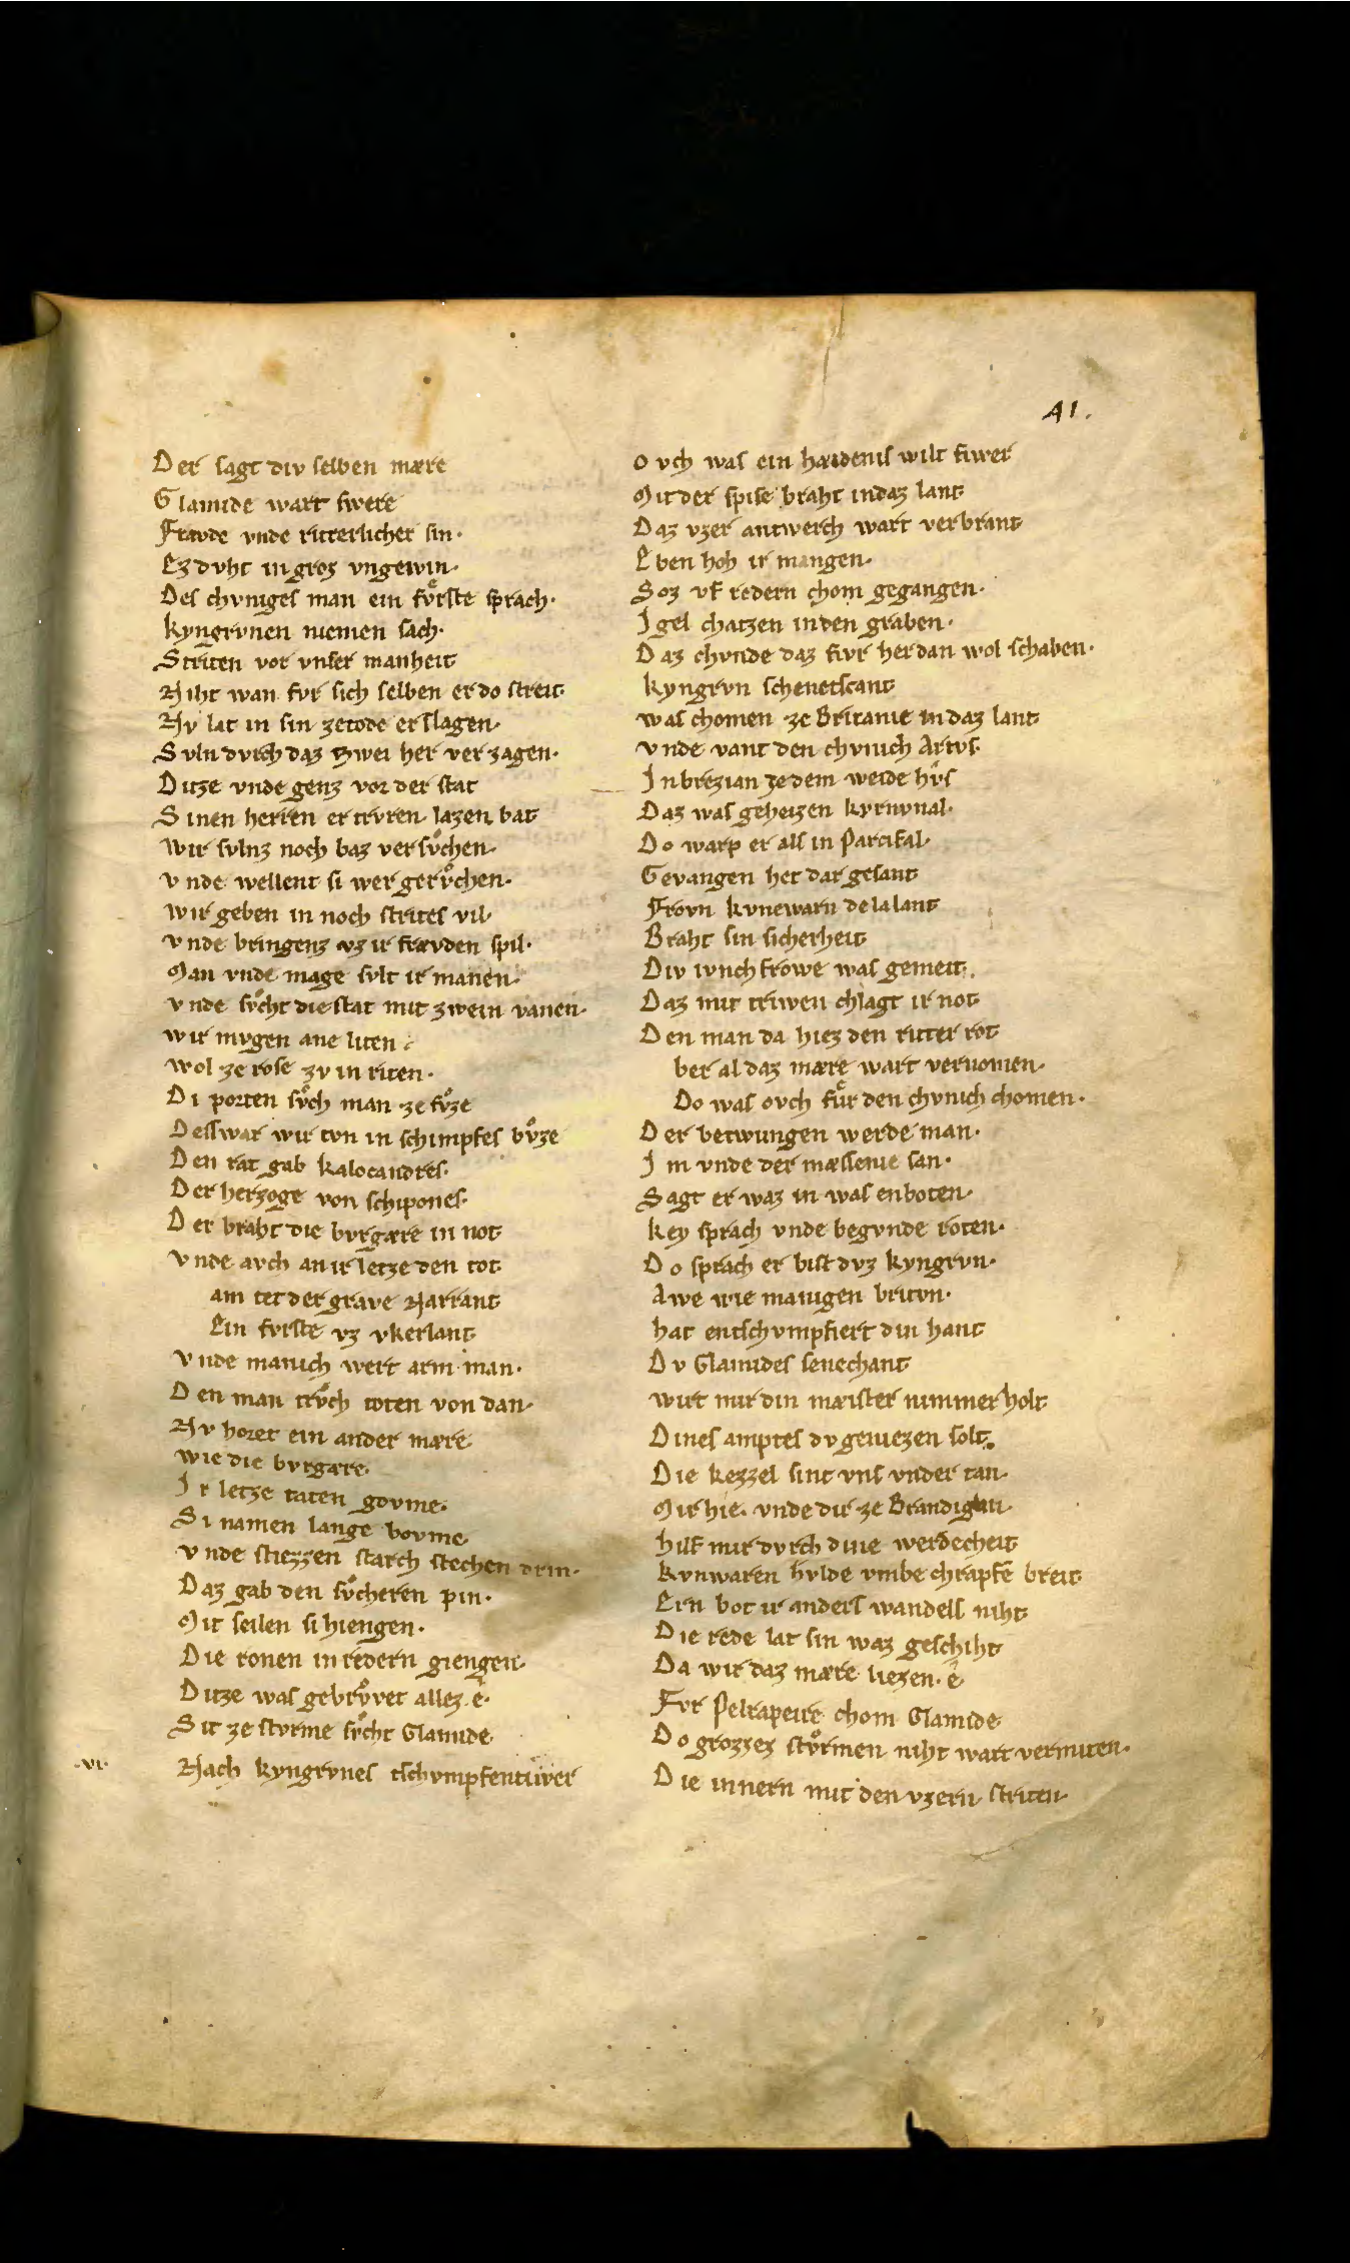 41.
Der sagt div selben mære
Glamide wart swere
Frævde vnde ritterlicher sin·
Ez dvht in groz vngewin·
Des chvniges man ein fvͤrste sprach·
kyngrvnen niemen sach·
Striten vor vnser manheit
Niht wan fvr sich selben er do streit·
Nv lat in sin zetode erslagen·
Svln dvrch daz zwei her verzagen·
Ditze vnde genz vor der stat
Sinen herren er trvren lazen bat
Wir svlnz noch baz versvͦchen·
vnde wellent si wer gervͦchen·
wir geben in noch strites vil·
vnde bringenz vz ir frævden spil·
Man vnde mage svlt ir manen·
vnde svͦcht die stat mit zwein vanen·
wir mvgen ane liten
wol ze rose zv in riten·
Di porten svͦch man ze fvͦze
Desswar wir tvn in schimpfes bvͦze
Den rat gab kalocandres·
Der herzoge von schipones·
Der braht die bvrgære in not
vnde avch an ir letze den tot
am tet der grave Narrant
Ein fvrste vz vkerlant
vnde manich wert arm man·
Den man trvͦch toten von dan·
Nv horet ein ander mære
wie die bvrgære·
Ir letze taten govme·
Si namen lange bovme
vnde stiezzen starch stechen drin·
Daz gab den svͦcheren pin·
Mit seilen si hiengen·
Die ronen in redern giengen·
Ditze was gebrvͦvet allez ê·
Sit ze stvrme svͦcht Glamide
·vi· Nach kyngrvnes tschvmpfentiver
ovch was ein hæidenis wilt fiwer
Mit der spise braht in daz lant
Daz vzer antwerch wart verbrant
Eben hoh ir mangen·
Soz vf redern chom gegangen·
Igel chatzen in den graben·
Daz chvnde daz fivr her dan wol schaben·
kyngrvn schenetscant
was chomen ze Britanie in daz lant
vnde vant den chvnich Artvs·
In brezian ze dem weide hvs
Daz was geheizen kyrnvnal·
Do warp er als in Parcifal·
Gevangen het dar gesant
Frovn kvnewarn de la lant
Braht sin sicherheit
Div ivnchfrowe was gemeit·
Daz mit triwen chlagt ir not
Den man da hiez den ritter rot
ber al daz mære wart vernomen·
Do was ovch fvͤr den chvnich chomen·
Der betwungen werde man·
Im vnde der mæssenie san·
Sagt er waz in was enboten·
key sprach vnde begvnde roten·
Do sprach er bist dvz kyngrvn·
Awe wie manigen britvn·
hat entschvmpfiert din hant
Dv Glamides senechant
wirt mir din mæister nimmer holt
Dines amptes dv geniezen solt·
Die kezzel sint vns vnder tan·
Mir hie· vnde dir ze Brandigan
hilf mir dvrch dine werdecheit
kvnwaren hvlde vmbe chrapfe breit·
Ern bot ir anders wandels niht
Die rede lat sin waz geschiht
Da wir daz mære liezen· ê
Fvr Pelrapeire chom Glamide
Do grozzez stvͦrmen niht wart vermiten·
Die innern mit den vzern striten·